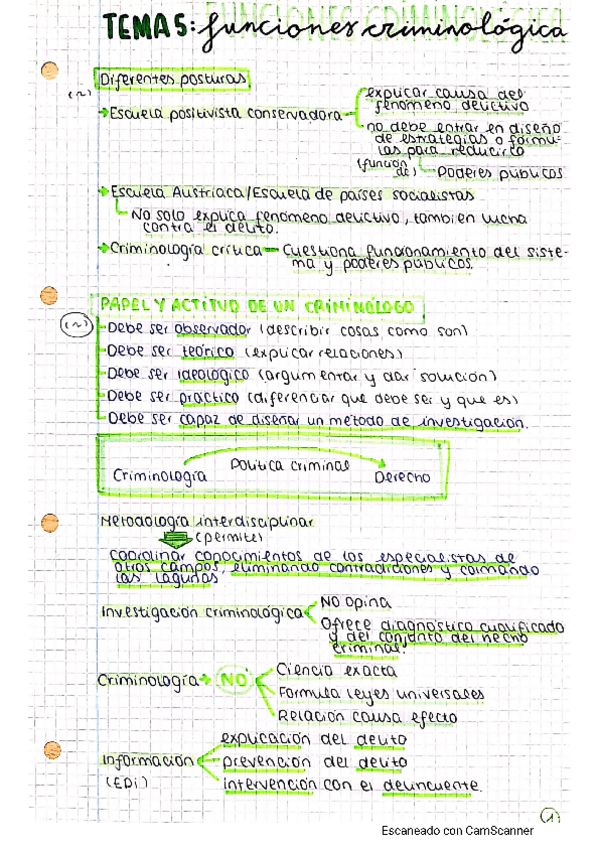 TEMA 5: funciones criminológica
Diferentes posturas
(~)
→ Escuela positivista conservadora
explicar causa del
fenómeno delictivo
no debe entrar en diseño
de estrategias o fórmu-
las para reducirlo
(función
de)
Poderes públicos
→ Escuela Austriaca/Escuela de países socialistas
No solo explica fenómeno delictivo, también lucha
contra el delito.
→ Criminología crítica — Cuestiona funcionamiento del siste-
ma y poderes públicos.
PAPEL Y ACTITUD DE UN CRIMINÓLOGO
(~)
Debe ser observador (describir cosas como son)
Debe ser teórico (explicar relaciones)
Debe ser ideológico (argumentar y dar solución)
Debe ser práctico (diferenciar que debe ser y que es)
Debe ser capaz de diseñar un método de investigación.
Política criminal
Criminología
Derecho
Metodología interdisciplinar
(permite)
coordinar conocimientos de los especialistas de
otros campos, eliminando contradiciones y colmando
las lagunas
Investigación criminológica
No opina
Ofrece diagnóstico cualificado
y del conjunto del hecho
criminal.
Criminología → NO
Ciencia exacta
Formula leyes universales
Relación causa efecto
Información
(EPI)
explicación del delito
prevención del delito
intervención con el delincuente.
1
Escaneado con CamScanner